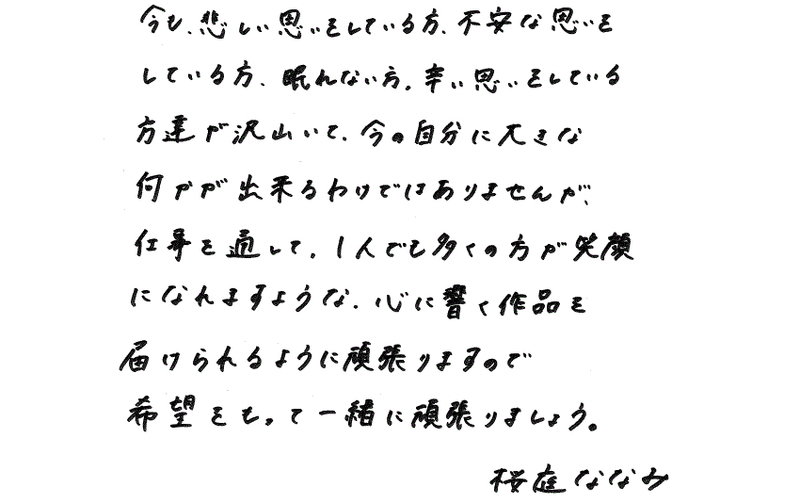 今も、悲しい思いをしている方、不安な思いを
している方、眠れない方。辛い思いをしている
方達が沢山いて、今の自分に大きな
何かが出来るわけではありませんが、
仕事を通して、1人でも多くの方が笑顔
になれますような、心に響く作品を
届けられるように頑張りますので
希望をもって一緒に頑張りましょう。
桜庭ななみ